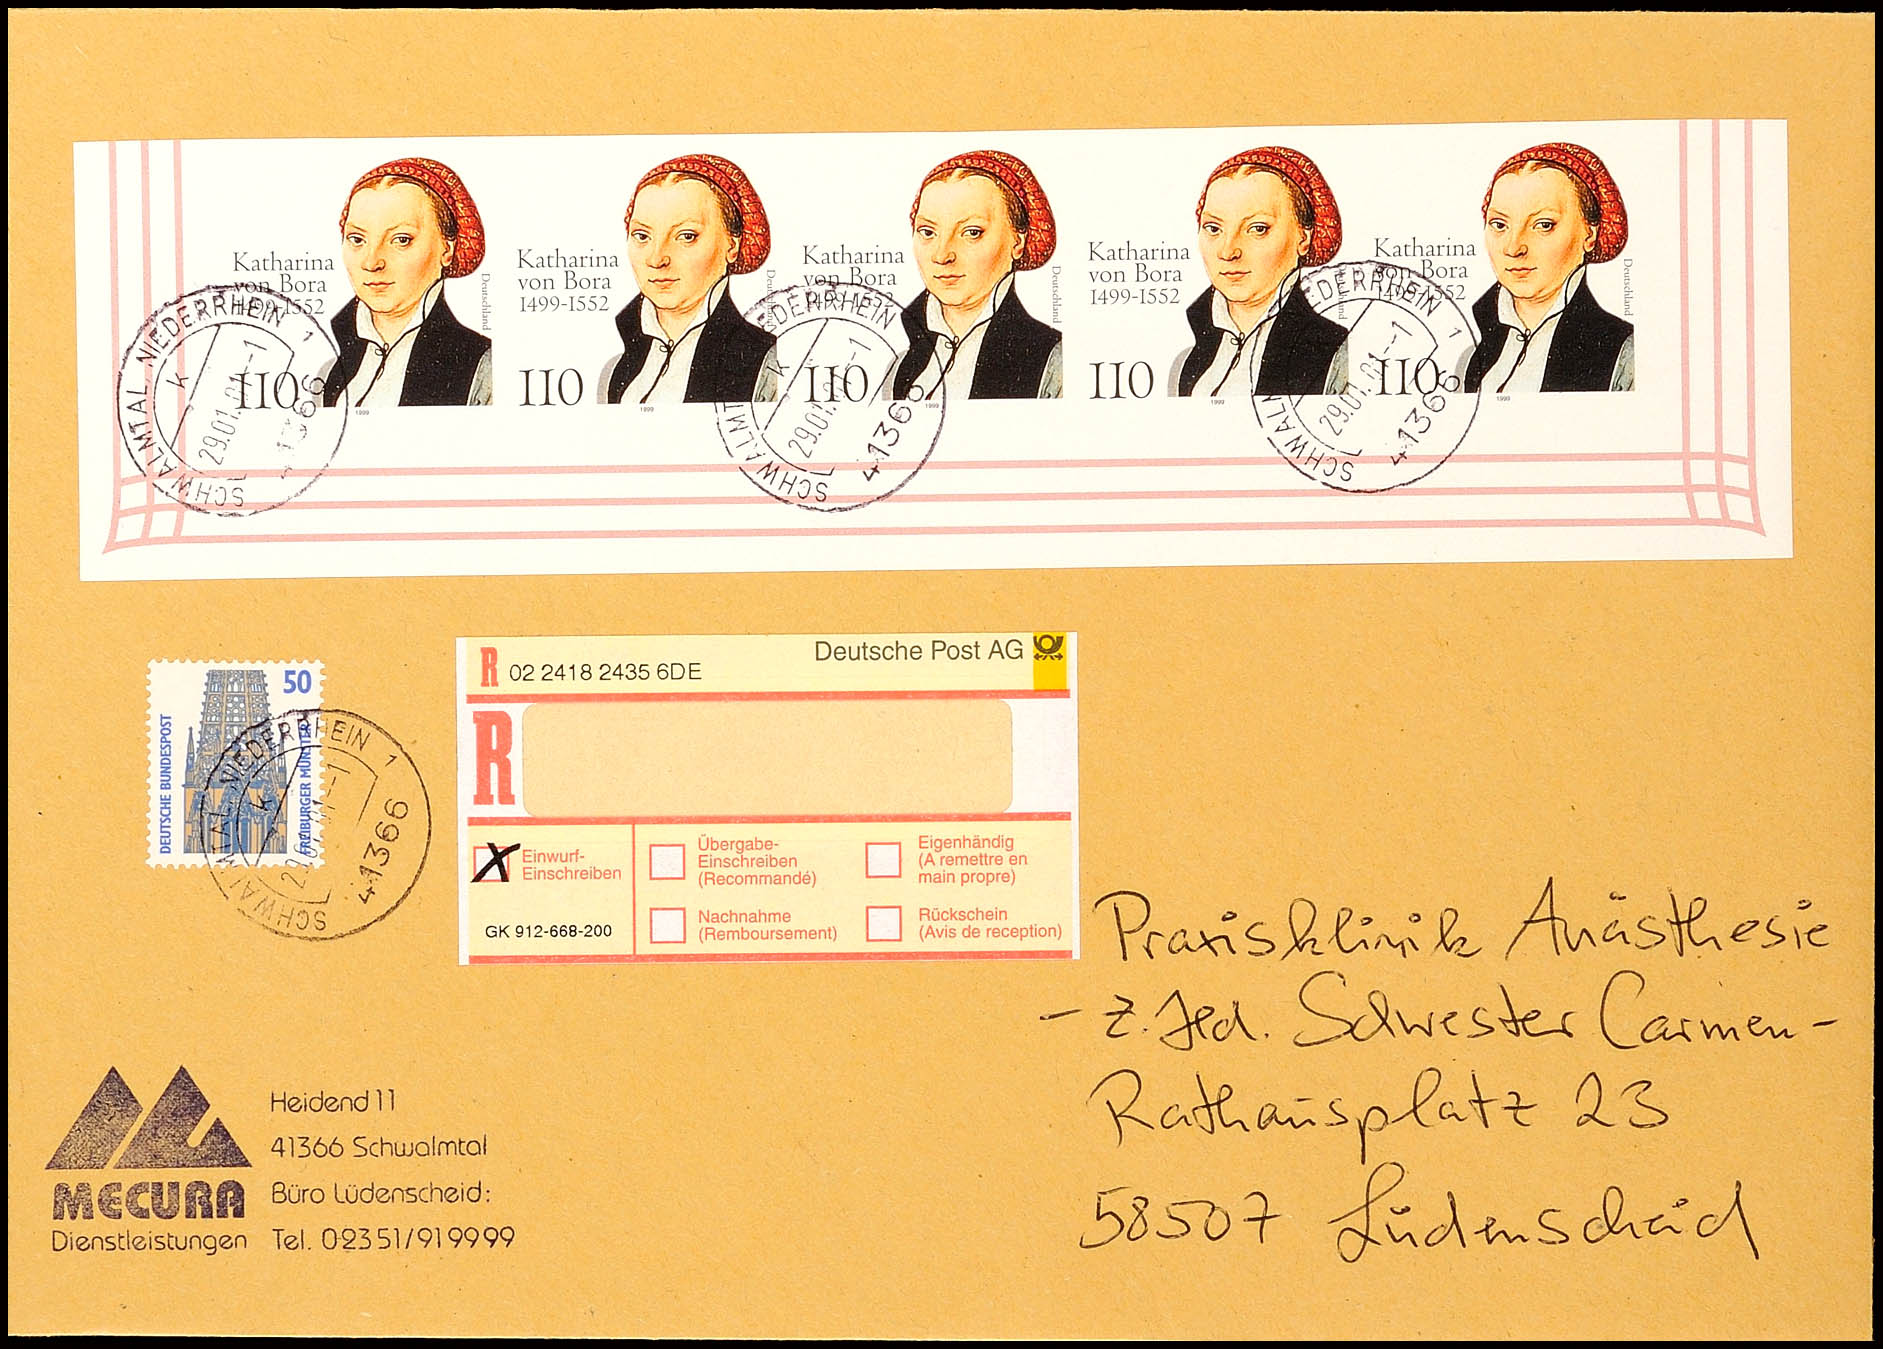 Katharina
von Bora
1499-1552
110
1999
Deutschland
Katharina
von Bora
1499-1552
110
1999
Deutschland
Katharina
von Bora
1499-1552
110
1999
Deutschland
Katharina
von Bora
1499-1552
110
1999
Deutschland
Katharina
von Bora
1499-1552
110
1999
Deutschland
SCHWALMTAL, NIEDERRHEIN 1
k
29.01.01.--1
41366
SCHWALMTAL, NIEDERRHEIN 1
k
29.01.01.--1
41366
SCHWALMTAL, NIEDERRHEIN 1
29.01.01.--1
41366
50
DEUTSCHE BUNDESPOST
FREIBURGER MÜNSTER
SCHWALMTAL, NIEDERRHEIN 1
k
29.01.01.--1
41366
R 02 2418 2435 6DE
Deutsche Post AG
R
X Einwurf-
Einschreiben
GK 912-668-200
Übergabe-
Einschreiben
(Recommandé)
Eigenhändig
(A remettre en
main propre)
Nachnahme
(Remboursement)
Rückschein
(Avis de reception)
Praxisklinik Anästhesie
- z. Hd. Schwester Carmen -
Rathausplatz 23
58507 Lüdenscheid
MECURA
Dienstleistungen
Heidend 11
41366 Schwalmtal
Büro Lüdenscheid:
Tel. 02351/919999